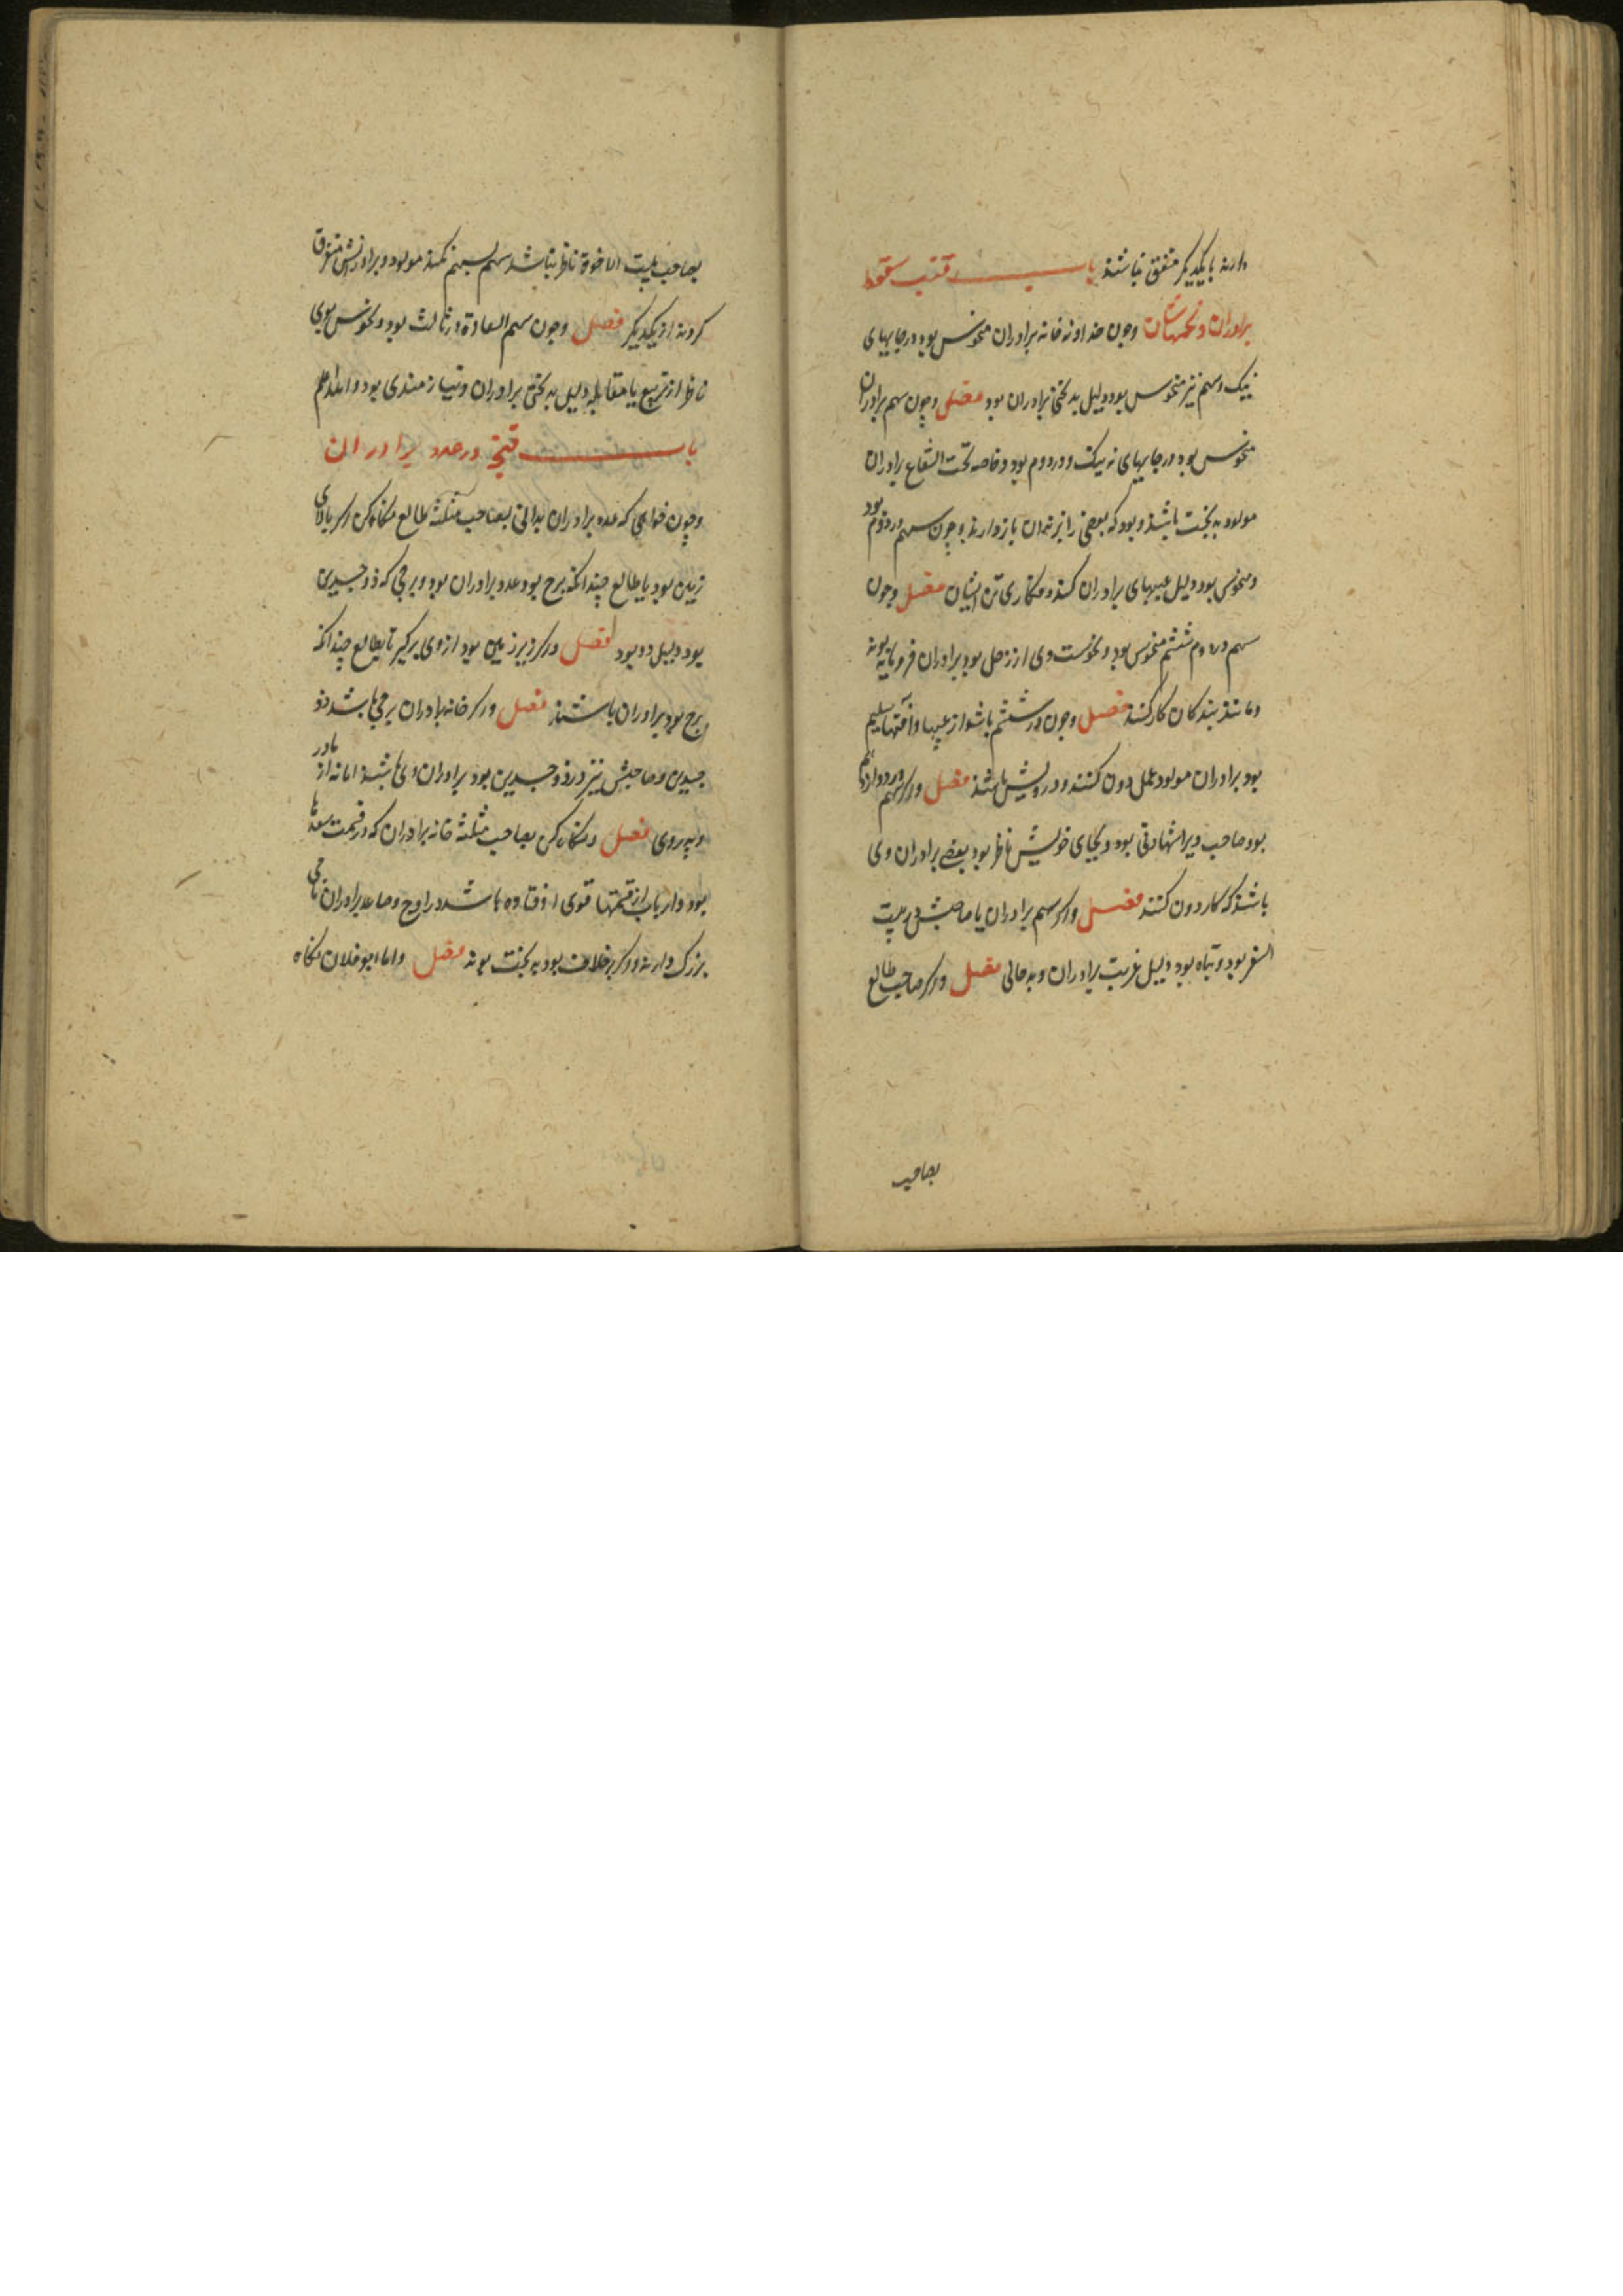 دارند با یکدیگر متفق نباشند باب قنب سقوط
برادران و نحسهاشان وچون خداوند خانه برادران منحوس بود در جایهای
نیک و سهم نیز منحوس بود دلیل بدبختی برادران بود فصل وچون سهم برادران
منحوس بود در جایهای نه نیک و در دوم بود و خاصه تحت الشعاع برادران
مولود بدبخت باشند و بود که بعضی را بزندان بازدارند وچون سهم در دوم بود
و منحوس بود دلیل عیبهای برادران کند و ایشان فصل وچون
سهم در ششم منحوس بود و نحوست وی از زحل بود برادران فرومایه بوند
و مانند بندکان کار کنند فصل وچون در ششم باشد از عیبها و آفتها سلیم
بود برادران مولود عمل دون کنند و درویش باشند فصل واکر سهم در دوازدهم
بود صاحب ویرا شهادتی بود و بجای خویش ناظر بود بعضی برادران وی
باشند که کار دون کنند فصل واکر سهم برادران یا صاحبش در بیت
السفر بود و تباه بود دلیل غربت برادران و بدحالی فصل واکر صاحب طالع
بصاحب
بصاحب بیت الاخوة ناظر نباشد سهم بسهم نکند مولود و برادرانش متفرق
کردند از یکدیکر فصل وچون سهم السعادة در ثالث بود و نحوس بوی
ناظر از تربیع یا مقابله دلیل بدبختی برادران و نیازمندی بود والله اعلم
باب قنج در عدد برادران
وچون خواهی که عدد برادران بدانی بصاحب مثلثه طالع نکاه کن اکر بالای
زمین بود با طالع چندانکه برج بود عدد برادران بود و برجی که ذو جسدین
بود دلیل دو بود فصل واکر زیر زمین بود از وی برکیر تا بطالع چندانکه
برج بود برادران باشند فصل واکر خانه برادران برجی باشد ذو
جسدین و صاحبش نیز در ذو جسدین بود برادران وی باشند اما نه از مادر
و پدر وی فصل و نکاه کن بصاحب مثلثه خانه برادران که در قسمت سعدها
بود و ارباب ازقسمتها قوی اوفتاده باشد در اوج و صاعد برادران نامی
بزرک دارند و اکر برخلاف بود بدبخت بوند فصل و اما ابو فلان نکاه